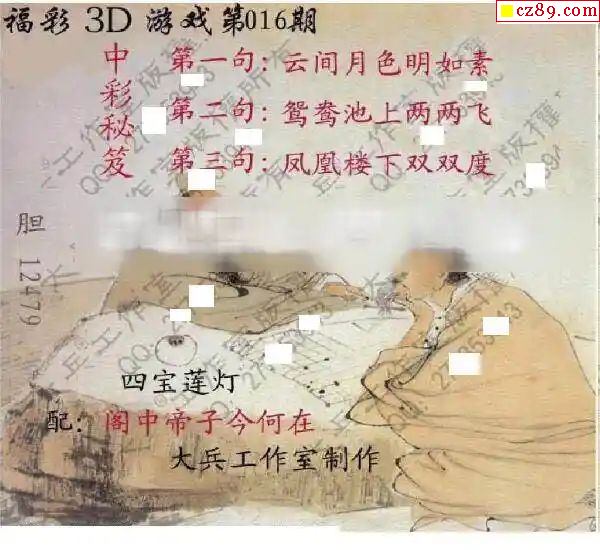 cz89.com
福彩 3D 游戏第016期
中彩秘笈
第一句：云间月色明如素
第二句：鸳鸯池上两两飞
第三句：凤凰楼下双双度
胆 12479
四宝莲灯
配：阁中帝子今何在
大兵工作室制作